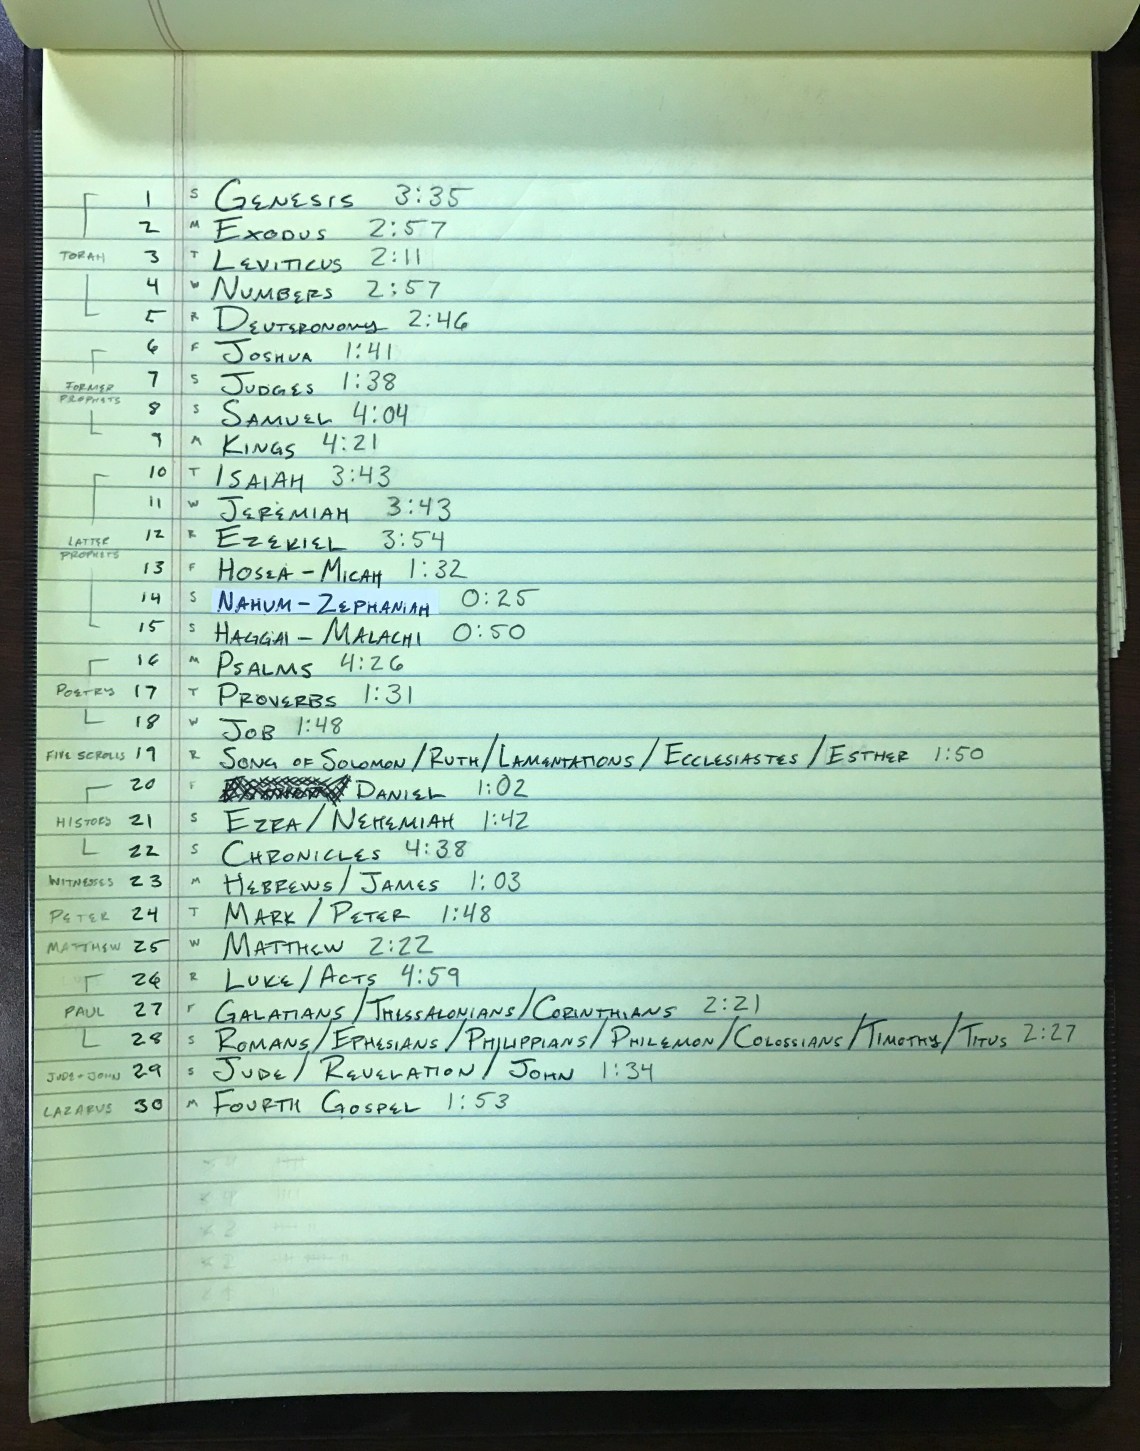 1 S GENESIS 3:35
2 M EXODUS 2:57
TORAH 3 T LEVITICUS 2:11
4 W NUMBERS 2:57
5 R DEUTERONOMY 2:46
6 F JOSHUA 1:41
FORMER PROPHETS 7 S JUDGES 1:38
8 S SAMUEL 4:04
9 M KINGS 4:21
10 T ISAIAH 3:43
11 W JEREMIAH 3:43
LATTER PROPHETS 12 R EZEKIEL 3:54
13 F HOSEA - MICAH 1:32
14 S NAHUM - ZEPHANIAH 0:25
15 S HAGGAI - MALACHI 0:50
16 M PSALMS 4:26
POETRY 17 T PROVERBS 1:31
18 W JOB 1:48
FIVE SCROLLS 19 R SONG OF SOLOMON / RUTH / LAMENTATIONS / ECCLESIASTES / ESTHER 1:50
20 F DANIEL 1:02
HISTORY 21 S EZRA / NEHEMIAH 1:42
22 S CHRONICLES 4:38
WITNESSES 23 M HEBREWS / JAMES 1:03
PETER 24 T MARK / PETER 1:48
MATTHEW 25 W MATTHEW 2:22
26 R LUKE / ACTS 4:59
PAUL 27 F GALATIANS / THESSALONIANS / CORINTHIANS 2:21
28 S ROMANS / EPHESIANS / PHILIPPIANS / PHILEMON / COLOSSIANS / TIMOTHY / TITUS 2:27
JUDE + JOHN 29 S JUDE / REVELATION / JOHN 1:34
LAZARUS 30 M FOURTH GOSPEL 1:53